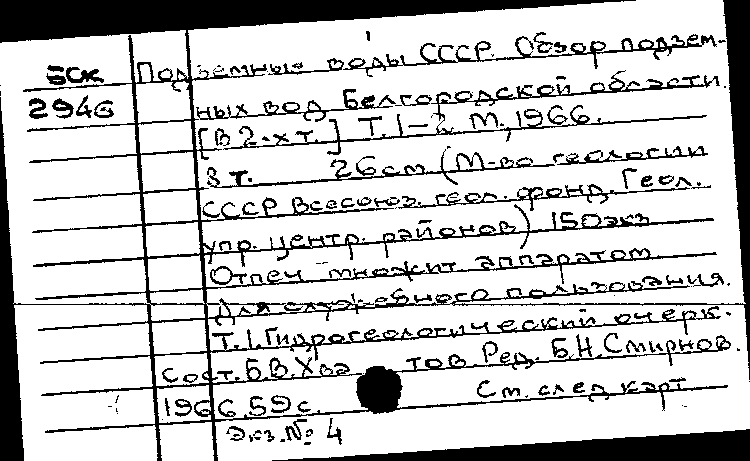 1
БСК Подземные воды СССР. Обзор подзем-
2946 ных вод Белгородской области.
[В 2-х т.] Т. 1-2. М., 1966.
3 т. 26 см (М-во геологии
СССР Всесоюз. геол. фонд. Геол.
упр. центр. районов) 150 экз
Отпеч множит аппаратом
Для служебного пользования.
Т. 1. Гидрогеологический очерк.
Сост. Б.В. Хва тов Ред. Б.Н. Смирнов.
1966. 59 с. См. след карт
Экз. № 4